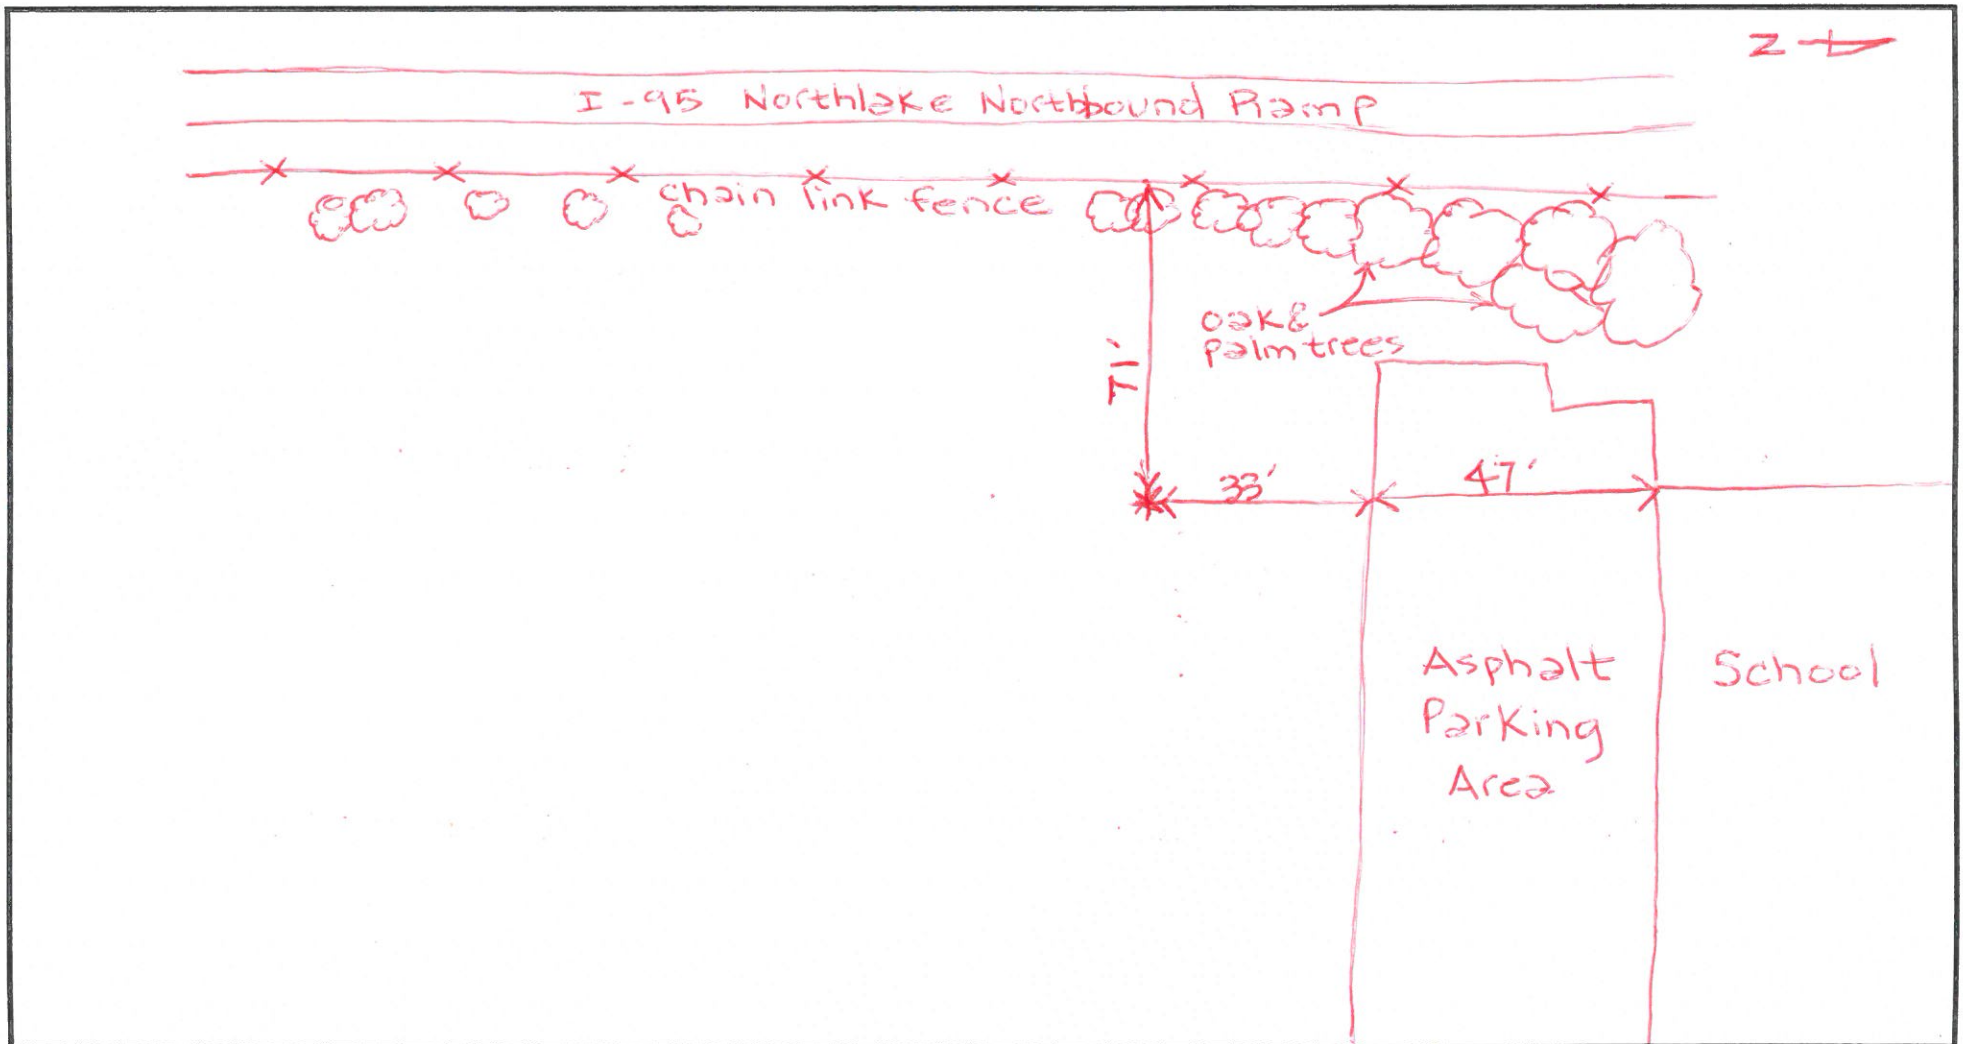 N
I-95 Northlake Northbound Ramp
chain link fence
oak &
palm trees
71'
33'
47'
Asphalt
Parking
Area
School